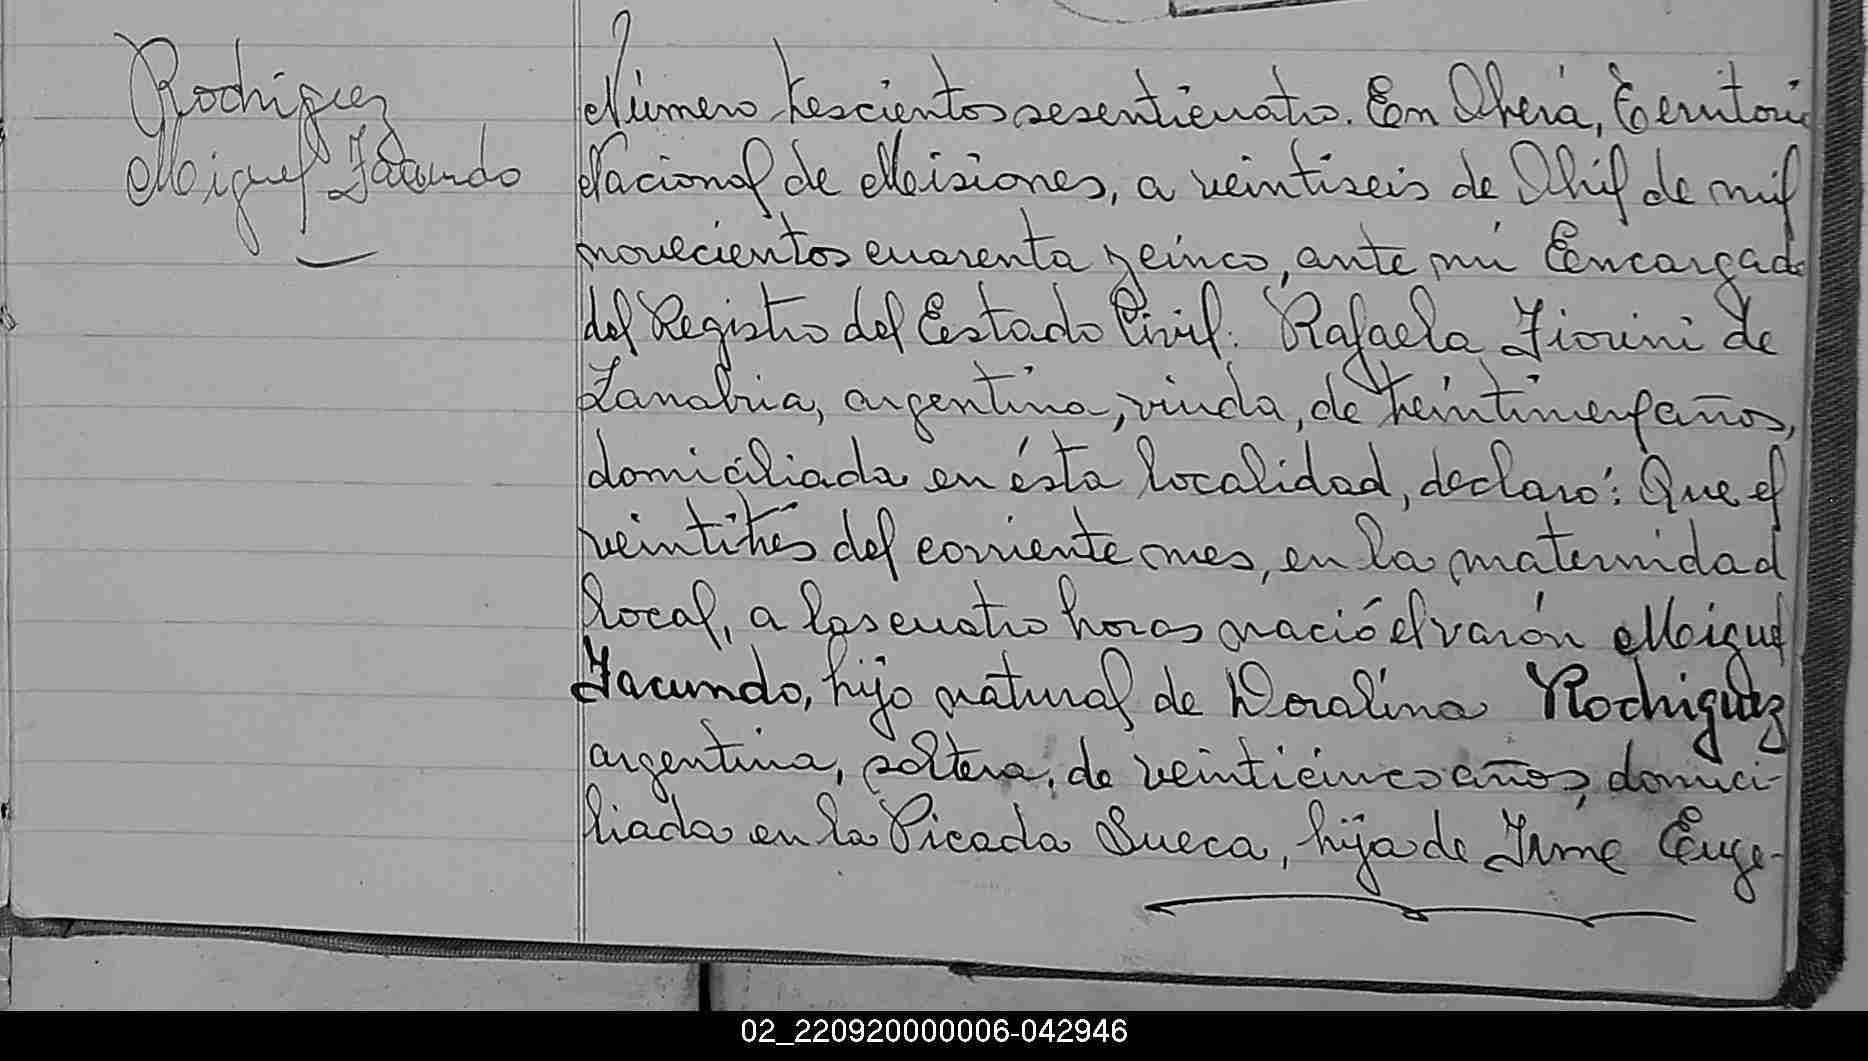 Rodriguez
Miguel Facundo
Número trescientos sesenticuatro. En Oberá, Territorio
Nacional de Misiones, a veintiseis de Abril de mil
novecientos cuarenta y cinco, ante mí Encargado
del Registro del Estado Civil. Rafaela Fiorini de
Zanabria, argentina, viuda, de años,
domiciliada en ésta localidad, declaró: Que el
veintitrés del corriente mes, en la maternidad
local, a las cuatro horas nació el varón Miguel
Facundo, hijo natural de Doralina Rodriguez
argentina, soltera, de veinticinco años, domici-
liada en la Picada Sueca, hija de Irme Euge-
02_220920000006-042946